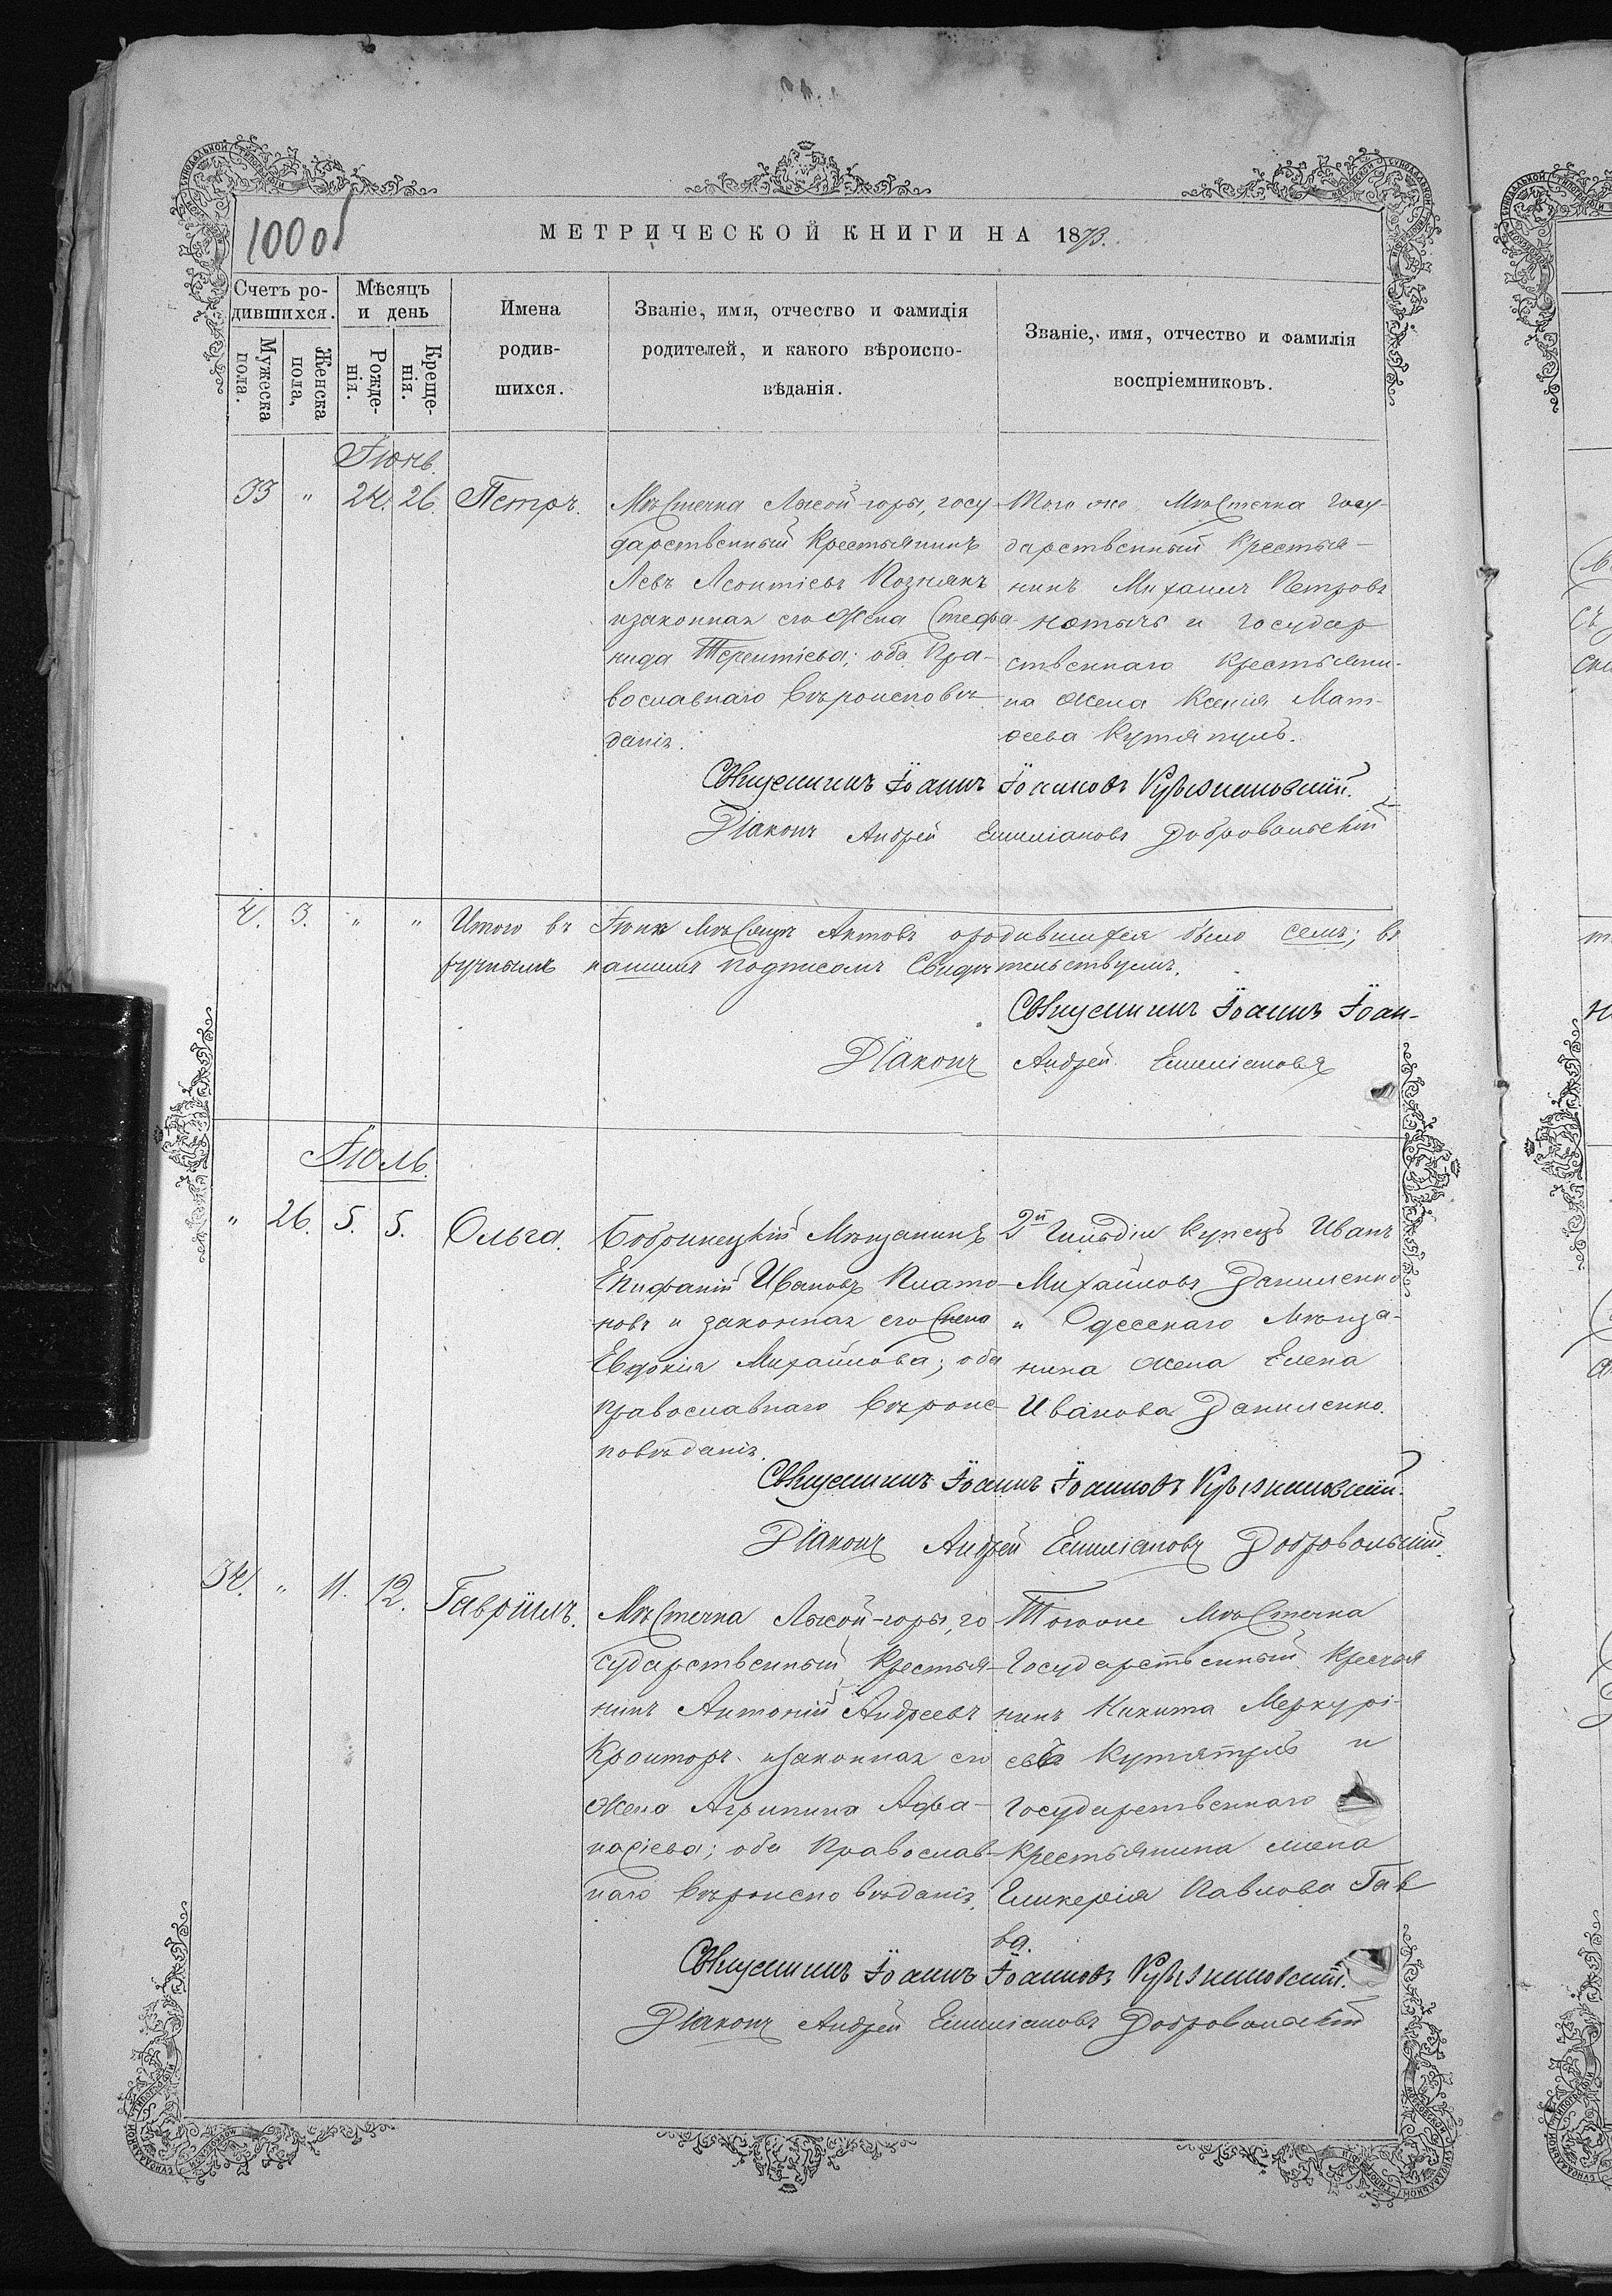 100 об
МЕТРИЧЕСКОЙ КНИГИ НА 1873.
Счетъ ро-
дившихся.
Мужеска
пола.
Женска
пола,
Мѣсяцъ
и день
Рожде-
нія.
Креще-
нія.
Имена
родив-
шихся.
Званіе, имя, отчество и фамилія
родителей, и какого вѣроиспо-
вѣданія.
Званіе, имя, отчество и фамилія
воспріемниковъ.
Іюнь.
33 " 24. 26. Петръ.
Мѣстечка Лысой-горы, госу-
дарственный Крестьянинъ
Левъ Леонтіевъ Познякъ
изаконная его Жена Стефа-
нида Терентіева; оба Пра-
вославнаго Вѣроисповѣ-
данія.
Того же Мѣстечка Госу-
дарственный Крестья-
нинъ Михаилъ Петровъ
и Государ
ственнаго Крестьяни-
на Жена Ксенія Мат-
ѳеева
Священникъ Іоаннъ Іоанновъ
Діаконъ Андрей Емиліановъ Добровольскій
4. 3. " " Итого въ Іюнѣ Мѣсяцѣ Актовъ ородившихся было семь; въ
нашимъ подписомъ Свидѣтельствуемъ.
Священникъ Іоаннъ Іоан-
Діаконъ Андрей Емиліановъ
Іюль.
" 26. 5. 5. Ольга.
Бобринецкій Мѣщанинъ
Епифаній Ивановъ Плато-
новъ и законная его Жена
Евдокія Михайлова; оба
православнаго Вѣроис-
повѣданія.
2й Гильдіи Купецъ Иванъ
Михайловъ Даниленко
и Одесскаго Мѣща-
нина Жена Елена
Иванова Даниленко.
Священникъ Іоаннъ Іоанновъ
Діаконъ Андрей Емиліановъ Добровольскій.
34. " 11. 12. Гавріилъ.
Мѣстечка Лысой-горы, го
сударственный Крестья-
нинъ Антоній Андреевъ
Кроиторъ изаконная его
Жена Агрипина Афа-
насіева; оба Православ-
наго Вѣроисповѣданія.
Тогоже Мѣстечка
Государственный Крестья
нинъ Никита Меркурі-
евъ и
Государственнаго
Крестьянина жена
Гликерія Павлова Гав
ва.
Священникъ Іоаннъ Іоанновъ
Діаконъ Андрей Емиліановъ Добровольскій